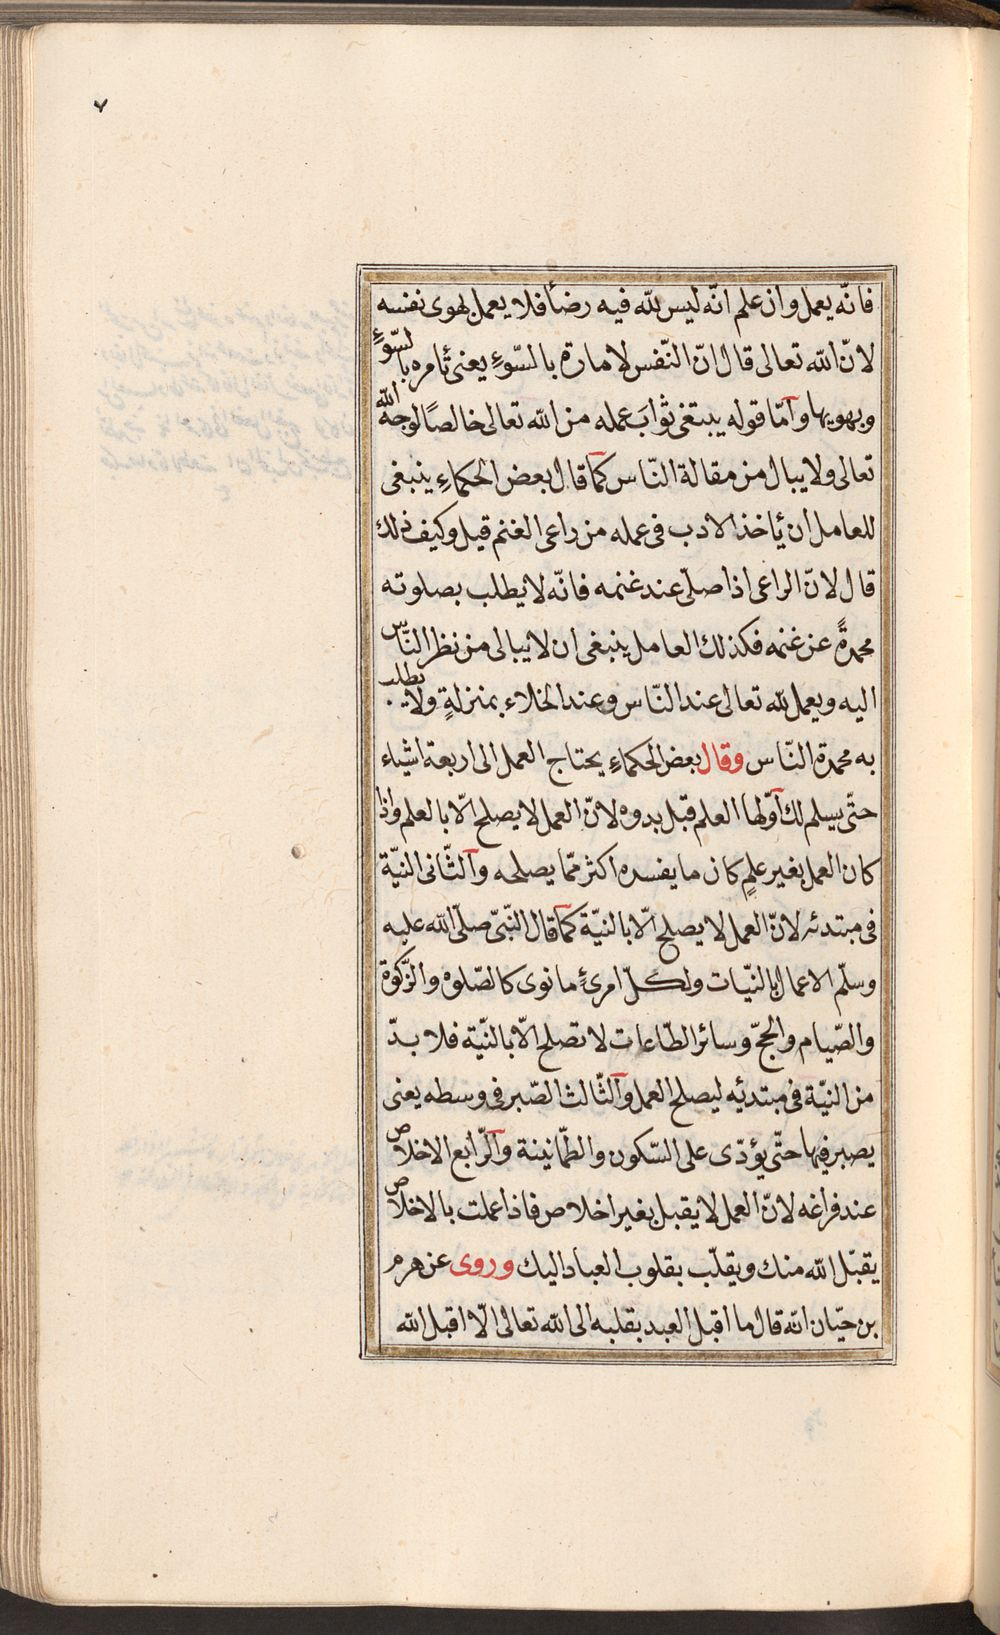 ٧
فانّه يعمل وان علم انّه ليس لله فيه رضاً فلا يعمل لهوى نفسه
لانّ الله تعالى قال انّ النّفس لامارة بالسّوءِ يعنى تأمره بالسّوءِ
ويهويها وآمّا قوله يبتغى ثوابَ عمله من الله تعالى خالصًا لوجه الله
تعالى ولا يبال من مقالة النّاس كمآ قال بعض الحكماءِ ينبغى
للعامل ان يأخذ الادب فى عمله من راعى الغنم قيل وكيف ذلك
قال لانّ الراعى اذا صلّى عند غنمه فانّه لا يطلب بصلوته
محمدةً عن غنمه فكذلك العامل ينبغى ان لا يبالى من نظر النّاس
اليه ويعمل لله تعالى عند النّاس وعند الخلاء بمنزلةٍ ولا يطلب
به محمدة النّاس وقال بعض الحكماءِ يحتاج العمل الى اربعة اشياء
حتّى يسلم لك آوّلها العلم قبل بدوه لانّ العمل لا يصلح الّا بالعلم واذا
كان العمل بغير علمٍ كان ما يفسده اكثر ممّا يصلحه وآلثّانى النيّة
فى مبتدئه لانّ العمل لا يصلح الّا بالنيّة كمآ قال النّبىّ صلّى الله عليه
وسلّم الاعمال بالنيّات ولكلّ امرئٍ ما نوى كالصّلوة والزّكوة
والصّيام والحجّ وسائر الطّاعات لا تصلح الّا بالنّيّة فلا بدّ
من النيّة فى مبتدئِه ليصلح العمل وآلثّالث الصّبر فى وسطه يعنى
يصبر فيها حتّى يؤدّى على السّكون والطّمانينة وآلرّابع الاخلاص
عند فراغه لانّ العمل لا يقبل بغير اخلاص فاذا عملت بالاخلاص
يقبّل الله منك ويقلّب بقلوب العباد اليك وروى عن هرم
بن حيّان انّه قال ما اقبل العبد بقلبه الى الله تعالى الّا اقبل الله